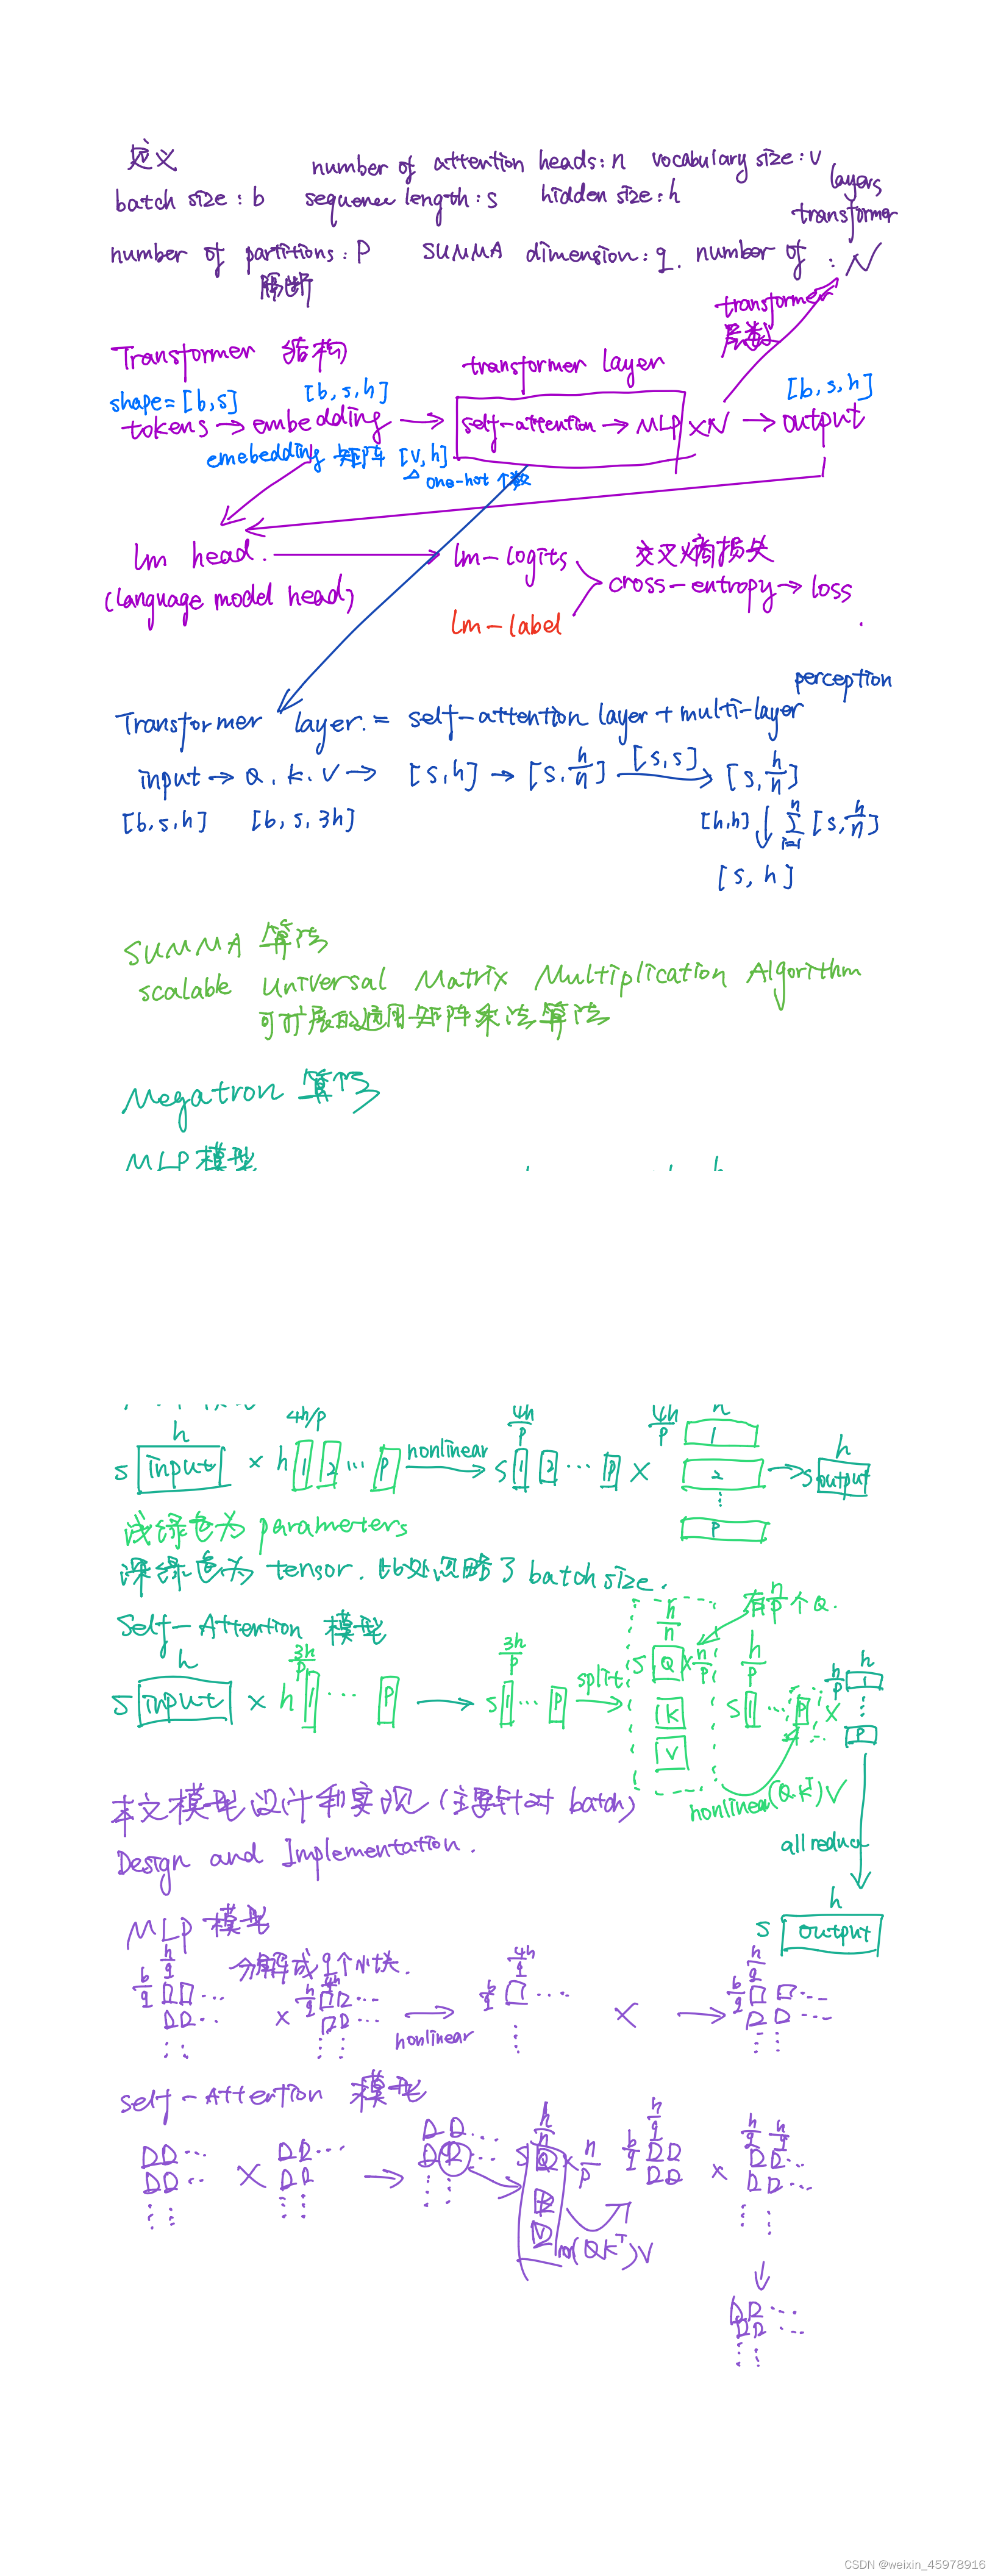 定义
number of attention heads: n vocabulary size: v
batch size: b sequence length: s hidden size: h
layers
transformer
number of partitions: P SUMMA dimension: q. number of : N
隔断
transformer
层数
Transformer 结构
transformer layer
shape=[b,s] [b,s,h] [b,s,h]
tokens → embedding → self-attention → MLP ×N → output
emebedding 矩阵 [v,h]
one-hot 个数
lm head. → lm-logits 交叉熵损失
(language model head) cross-entropy → loss
lm-label
perception
Transformer layer. = self-attention layer + multi-layer
input → Q. k. v → [s,h] → [s, h/n] [s,s] → [s, h/n]
[b,s,h] [b,s,3h] [h,h] ↓ n Σ i=1 [s, h/n]
[s, h]
SUMMA 算法
scalable Universal Matrix Multiplication Algorithm
可扩展的通用矩阵乘法算法
Megatron
MLP 模型
h 4h/p 4h/p 4h/p h
s input × h 1 2 … P nonlinear → s 1 2 … P × 1 → s output h
2
⋮
P
浅绿色为 parameters
深绿色为 tensor. 此处忽略了 batch size.
Self-Attention 模型
有 n/p 个 Q.
h 3h/p 3h/p h/n h/p h/p h
s input × h 1 … P → s 1 … P split → s Q × n/p s 1 … P × 1
K ⋮
V P
nonlinear(Q.K^T)V
本文模型设计和实现 (主要针对 batch)
Design and Implementation.
all reduce
h
s output
MLP 模型
分解成 q 个小块.
b/q h/q × h/q 4h/q nonlinear → b/q 4h/q … × → b/q h/q
self-Attention 模型
… × … → … s h/n Q × n/p b/q h/q × h/q h/q
V
(QK^T)V
CSDN @weixin_45978916